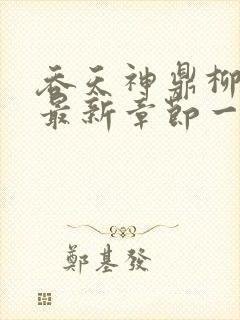 吞天神鼎柳
最新章節一
鄭基發